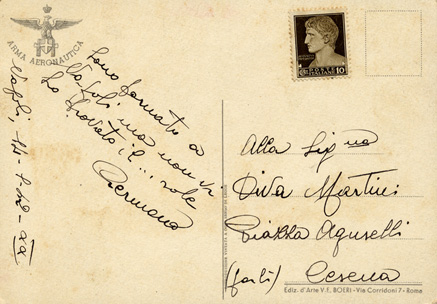 ARMA AERONAUTICA
Napoli, 14-7-42-XX
Sono tornato a
Napoli ma non vi
ho trovato il... sole
Germano
POSTE
ITALIANE 10
Alla Sig.na
Diva Martini
Piazza Aguselli
(Forlì) Cesena
Ediz. d'Arte V. E. BOERI - Via Corridoni 7 - Roma